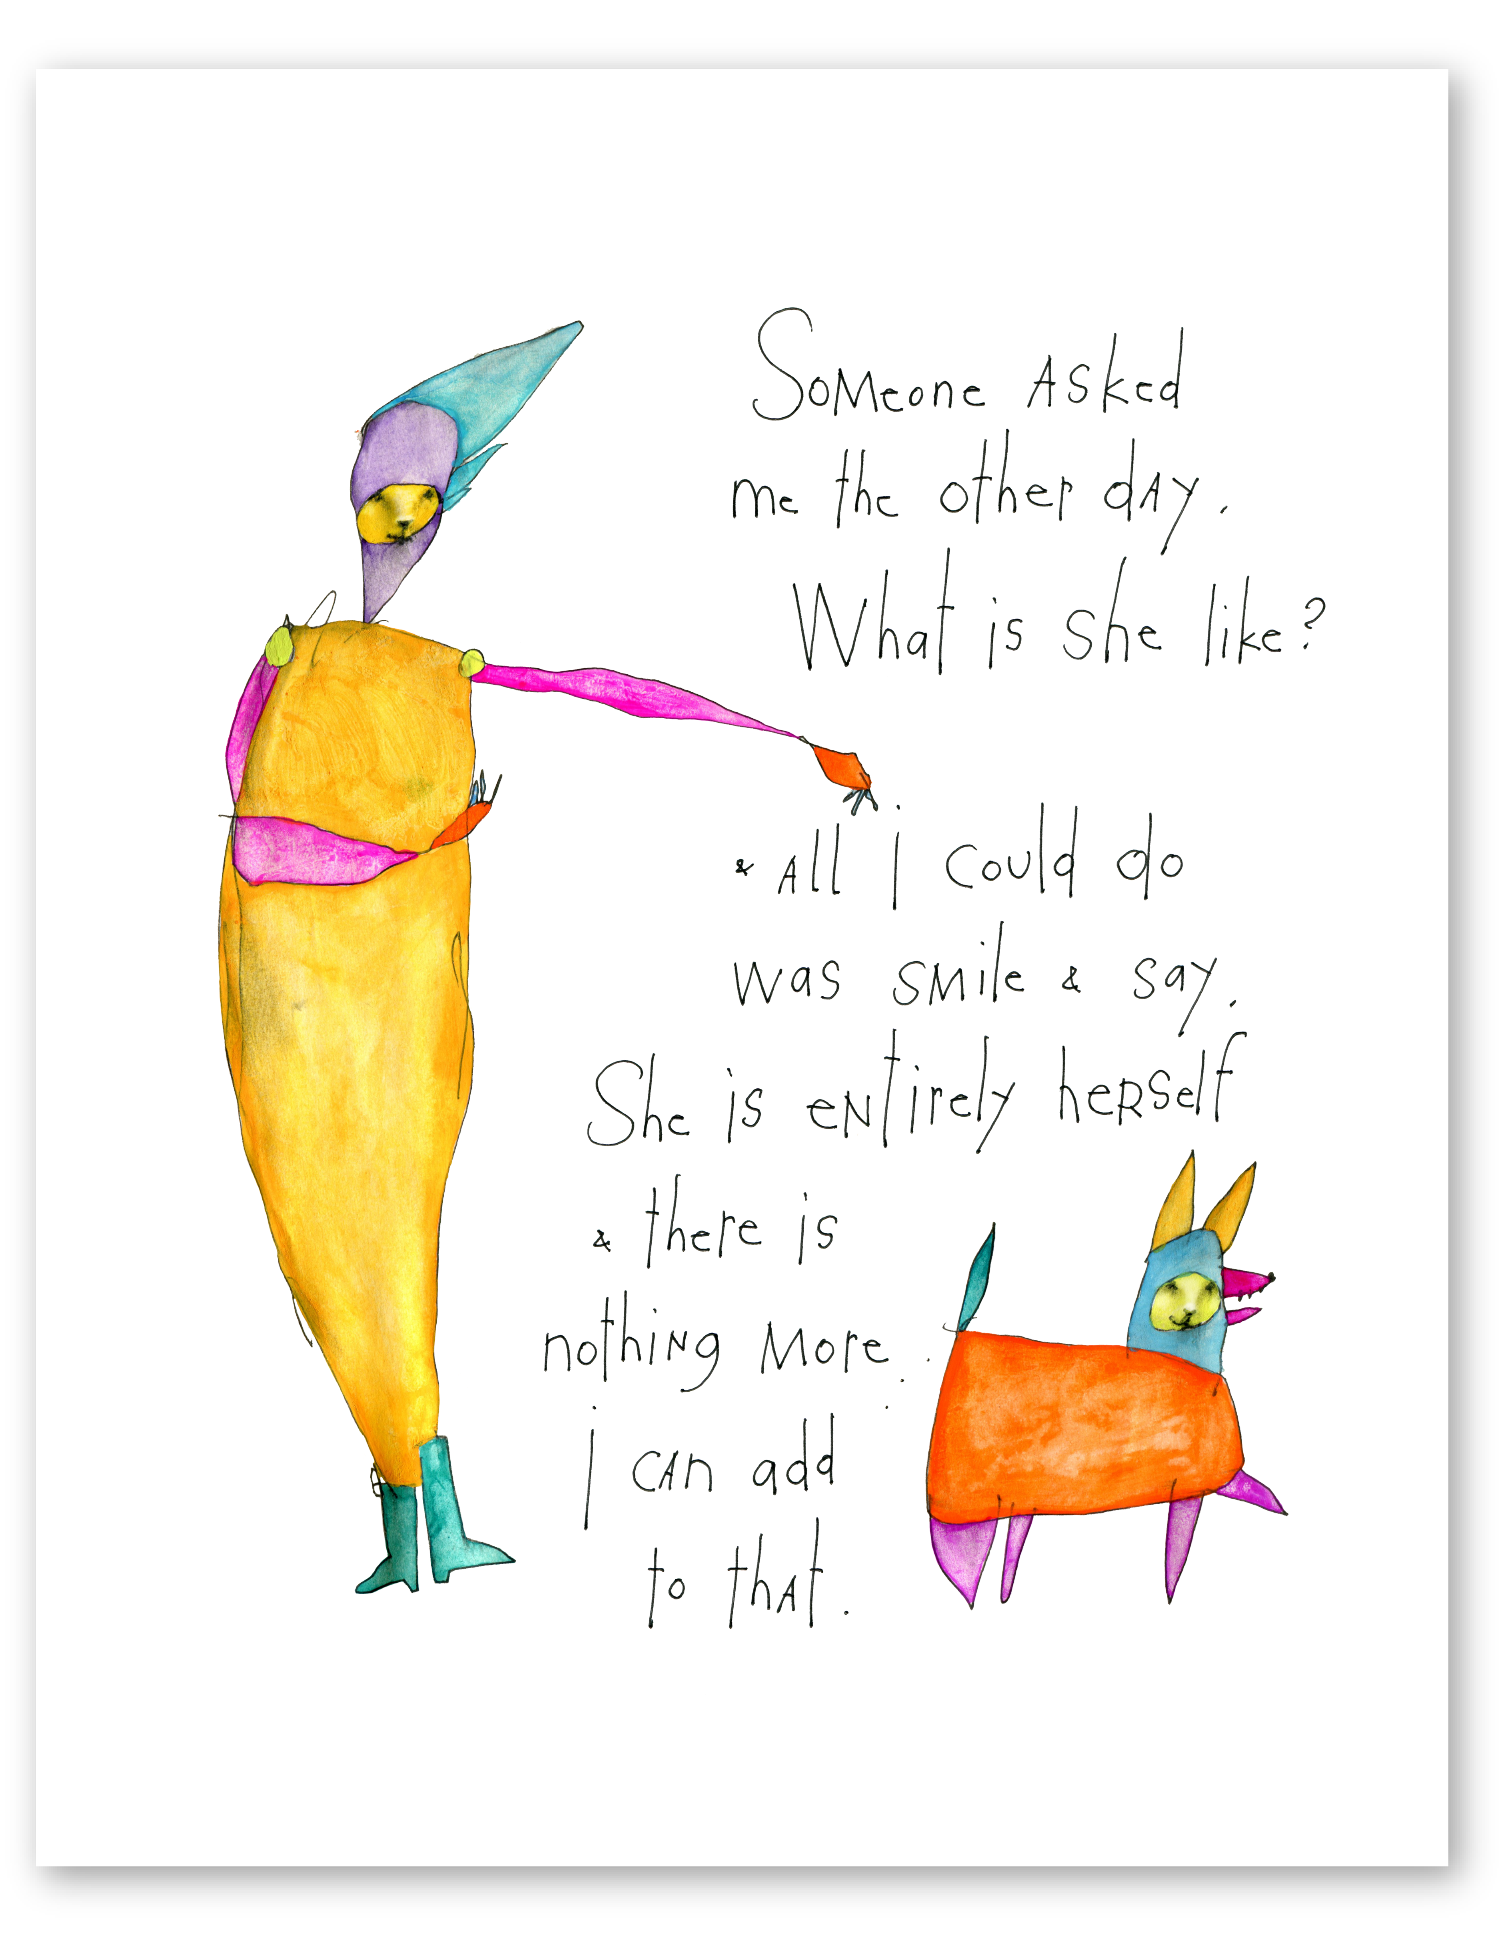 Someone asked
me the other day.
What is she like?
& all i could do
was smile & say.
She is entirely herself
& there is
nothing more.
i can add
to that.